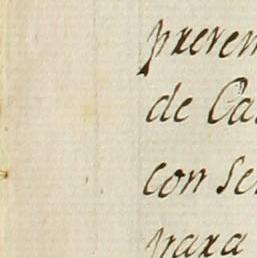 preven
de Ca
con se
para